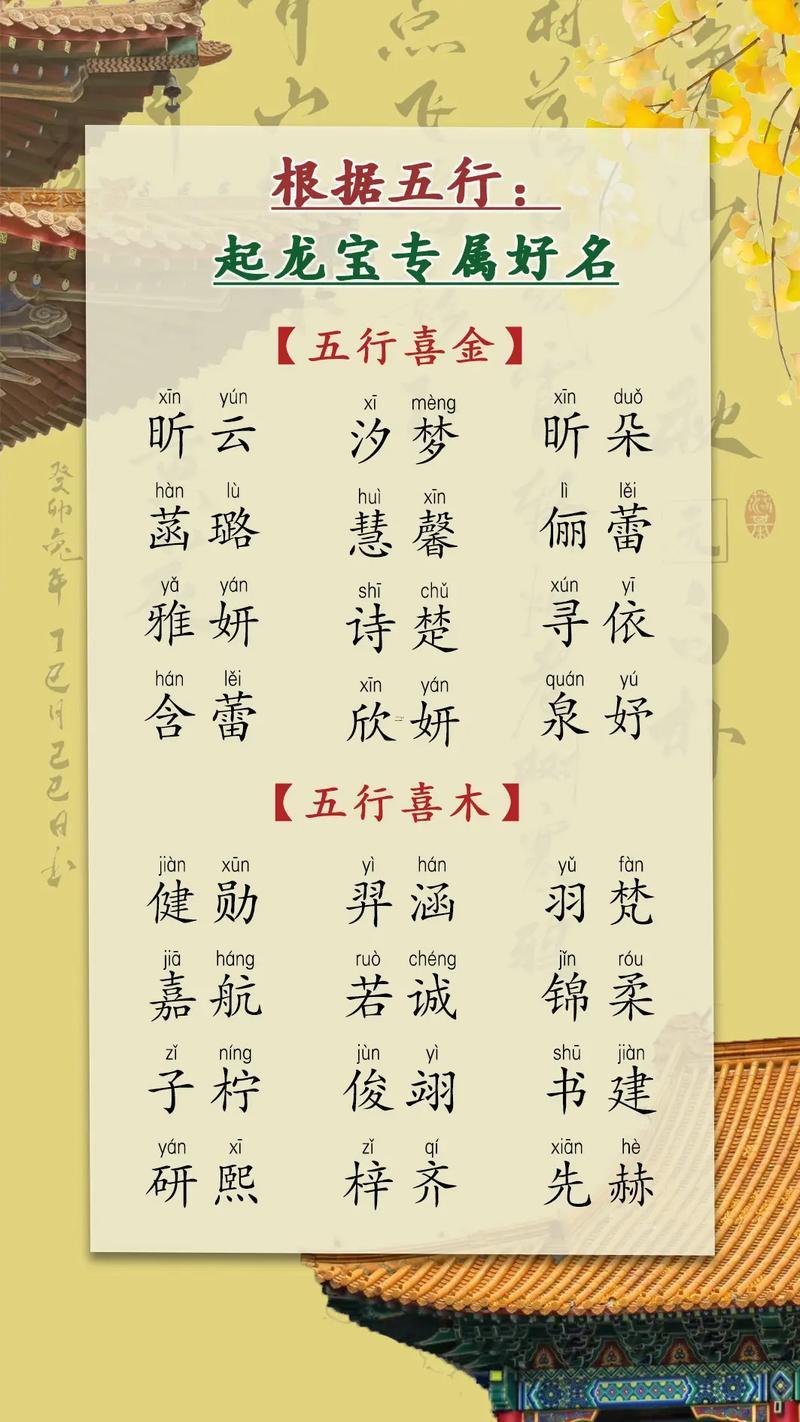 根据五行：
起龙宝专属好名
【五行喜金】
xīn yún xī mèng xīn duǒ
昕云 汐梦 昕朵
hàn lù huì xīn lì lěi
菡璐 慧馨 俪蕾
yǎ yán shī chǔ xún yī
雅妍 诗楚 寻依
hán lěi xīn yán quán yú
含蕾 欣妍 泉妤
【五行喜木】
jiàn xūn yì hán yǔ fàn
健勋 羿涵 羽梵
jiā háng ruò chéng jǐn róu
嘉航 若诚 锦柔
zǐ níng jùn yì shū jiàn
子柠 俊翊 书建
yán xī zǐ qí xiān hè
研熙 梓齐 先赫
癸卯兔年丁巳月己巳日